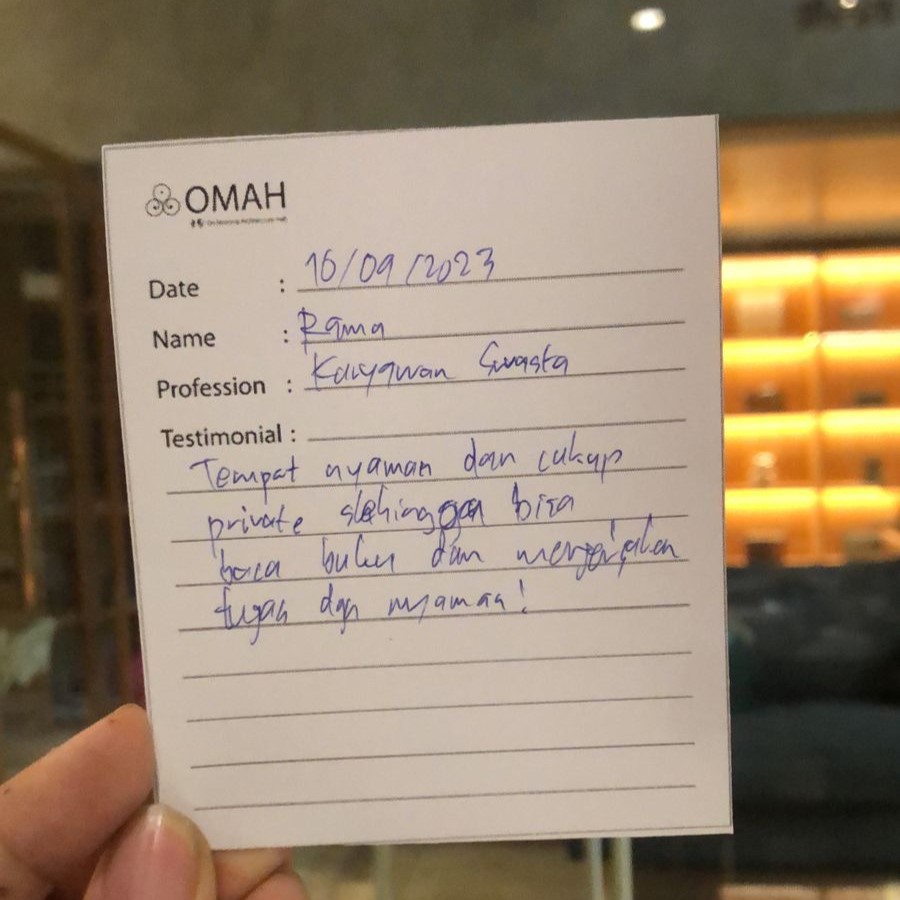 OMAH
Date : 16/09/2023
Name : Rama
Profession : Karyawan Swasta
Testimonial :
Tempat nyaman dan cukup
private sehingga bisa
baca buku dan mengerjakan
tugas dgn nyaman!